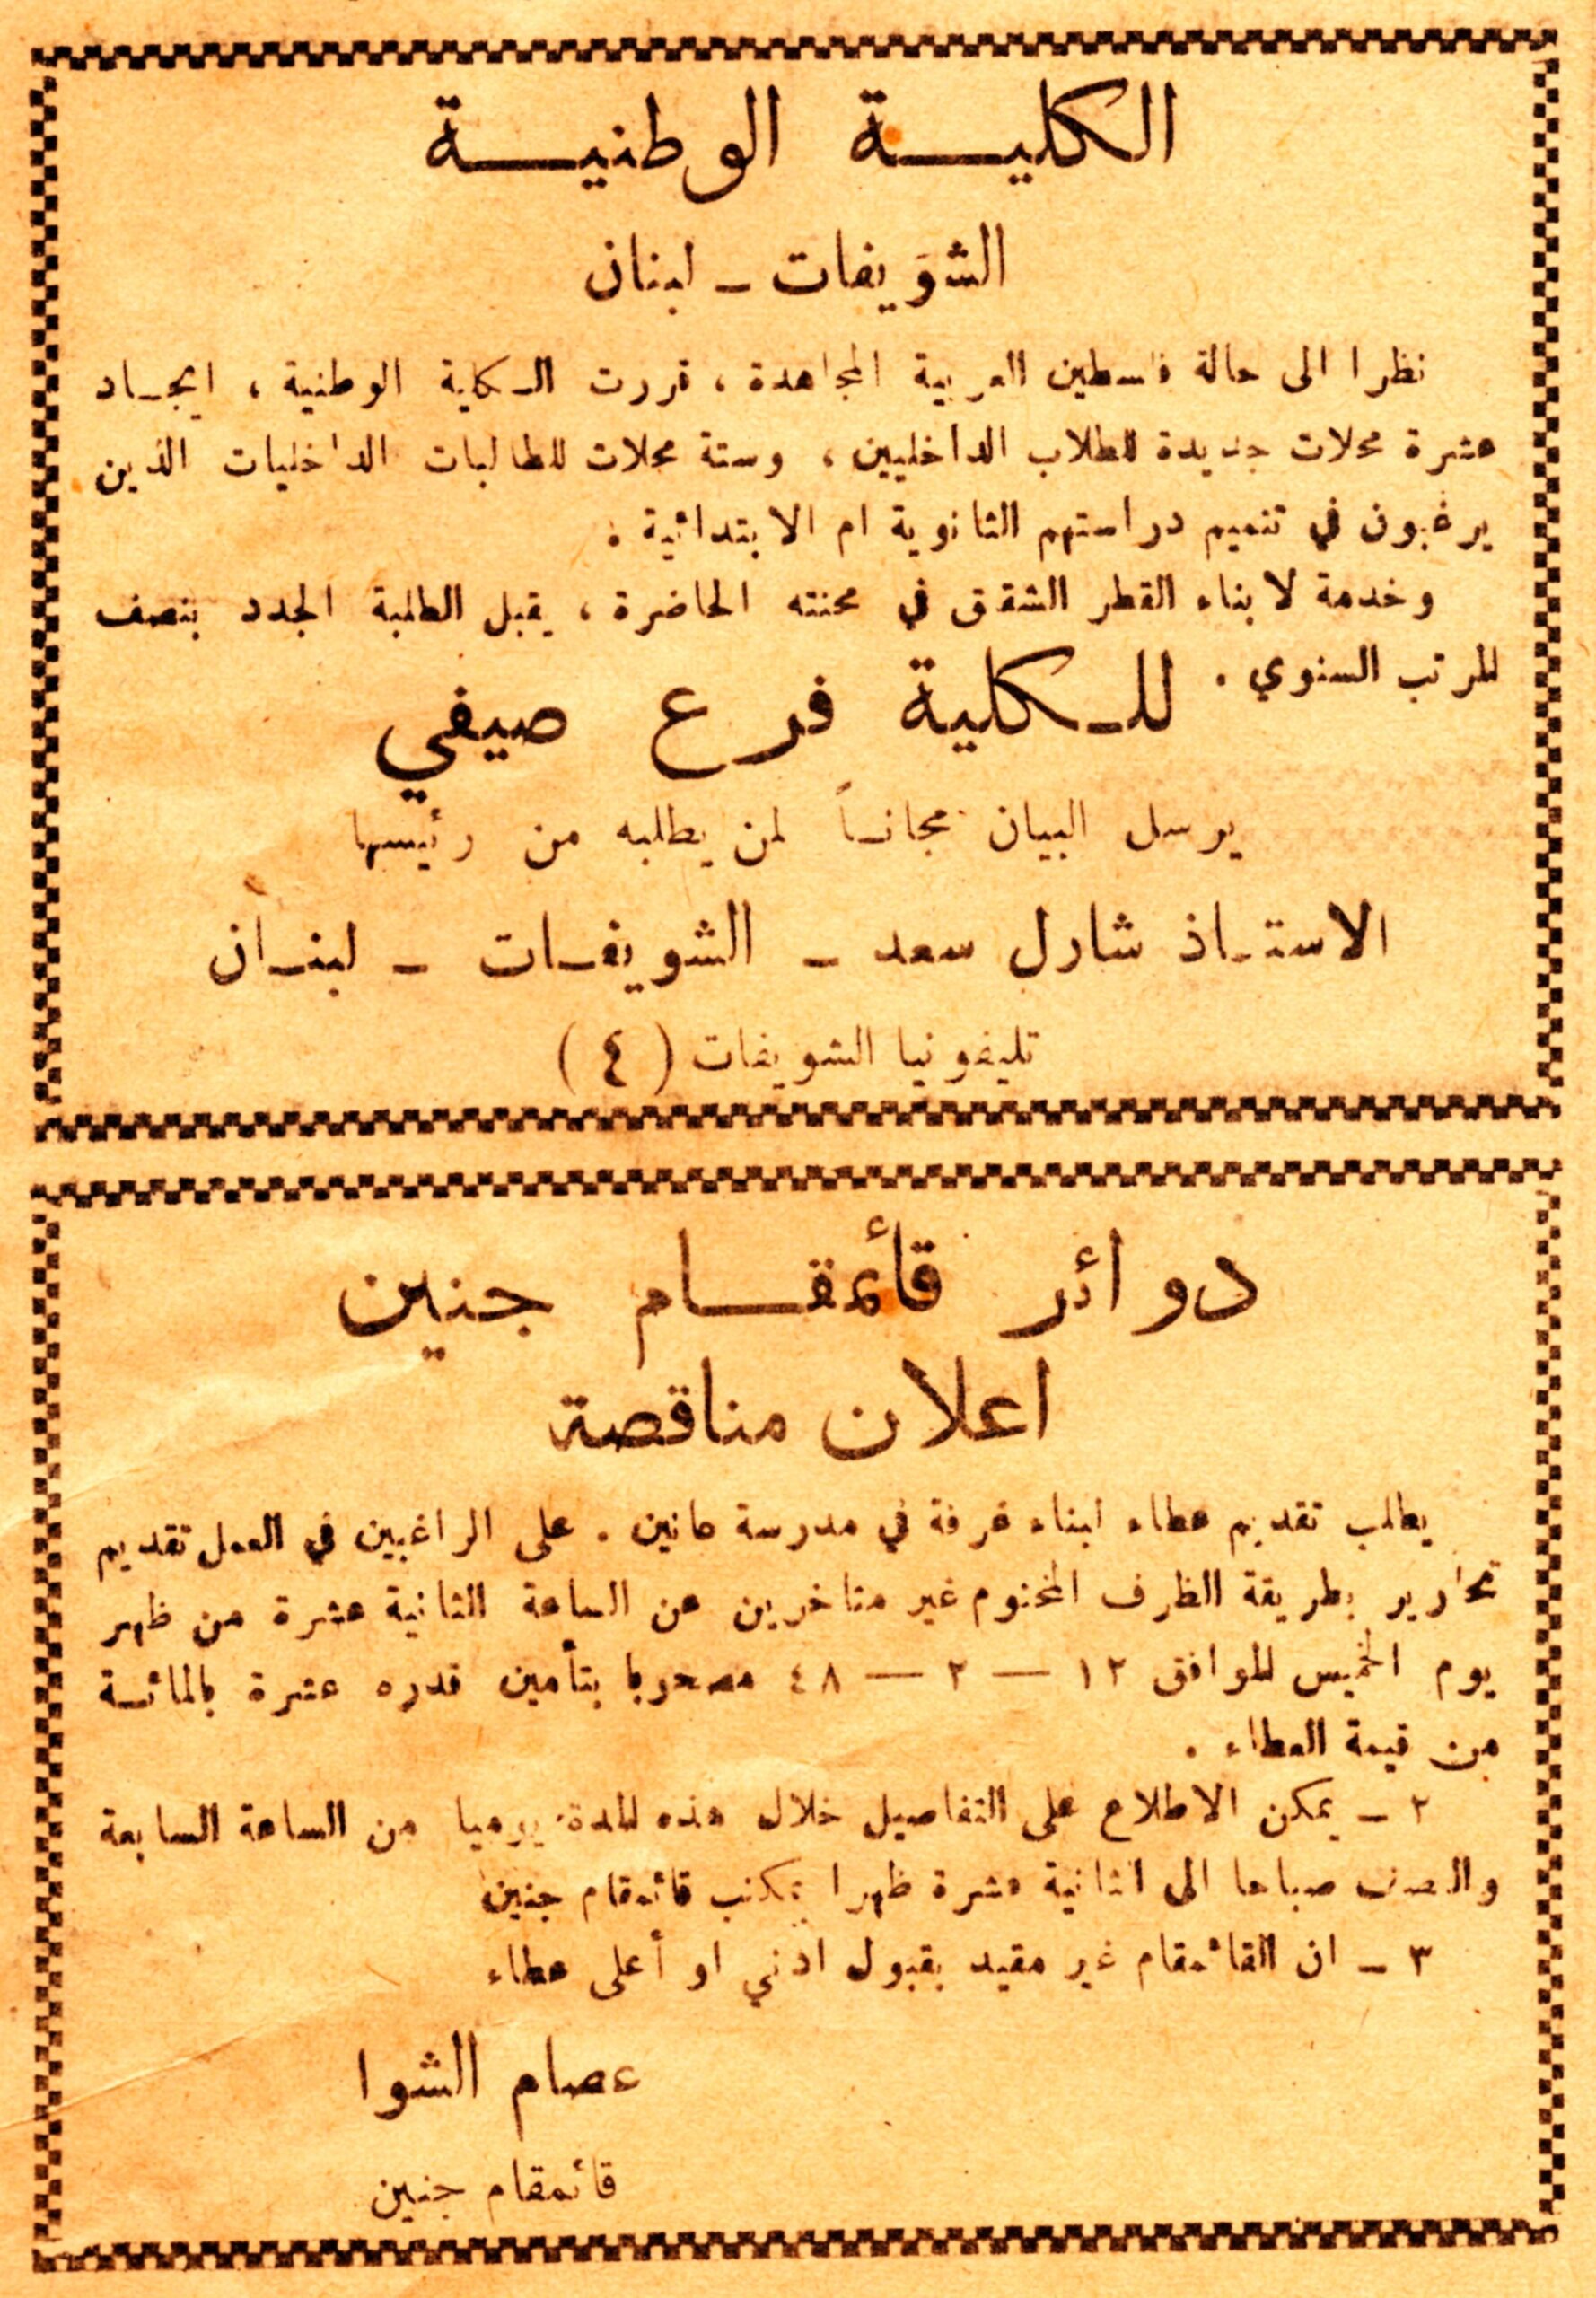 الكلية الوطنية
الشويفات - لبنان
نظرا الى حالة فلسطين العربية المجاهدة ، قررت الكلية الوطنية ، ايجاد
عشرة محلات جديدة للطلاب الداخليين ، وستة محلات للطالبات الداخليات الذين
يرغبون في تتميم دراستهم الثانوية ام الابتدائية :
وخدمة لابناء القطر الشقيق في محنته الحاضرة ، يقبل الطلبة الجدد بنصف
المرتب السنوي .
للكلية فرع صيفي
يرسل البيان مجاناً لمن يطلبه من رئيسها
الاستاذ شارل سعد - الشويفات - لبنان
تليفونيا الشويفات ( ٤ )
دوائر قأئمقام جنين
اعلان مناقصة
يطلب تقديم عطاء لبناء غرفة في مدرسة عانين . على الراغبين في العمل تقديم
تحارير بطريقة الظرف المختوم غير متاخرين عن الساعة الثانية عشرة من ظهر
يوم الخميس الموافق ١٢ — ٢ — ٤٨ مصحوبا بتأمين قدره عشرة بالمائة
من قيمة العطاء .
٢ - يمكن الاطلاع على التفاصيل خلال هذه المدة يوميا من الساعة السابعة
والنصف صباحا الى الثانية عشرة ظهرا بمكتب قائمقام جنين
٣ - ان القائمقام غير مقيد بقبول ادني او أعلى عطاء
عصام الشوا
قائمقام جنين